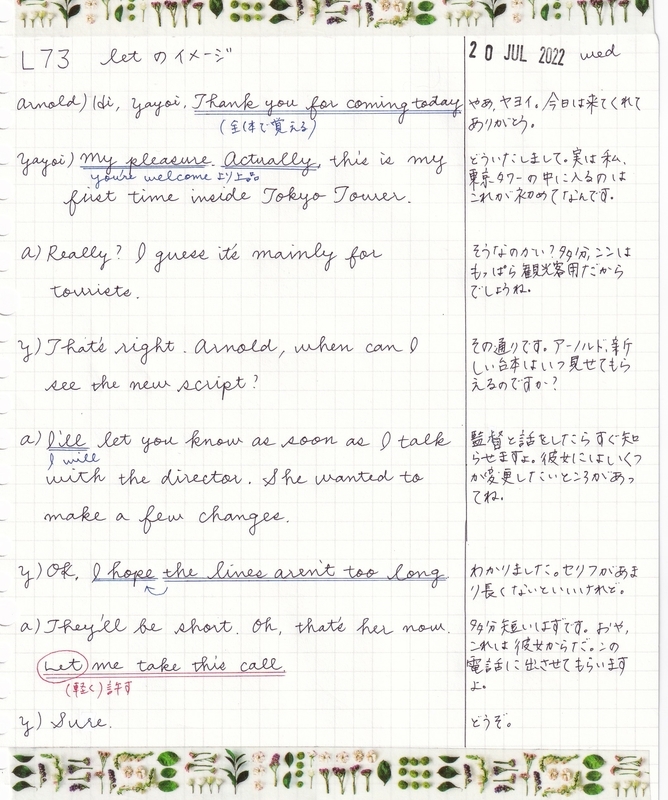 L73 let のイメージ
20 JUL 2022 wed
Arnold) Hi, Yayoi. Thank you for coming today
(全体で覚える)
やあ、ヤヨイ。今日は来てくれて
ありがとう。
Yayoi) My pleasure. Actually, this is my
you're welcome より上品
first time inside Tokyo Tower.
どういたしまして。実は私、
東京タワーの中に入るのは
これが初めてなんです。
a) Really? I guess it's mainly for
tourists.
そうなのかい？多分、ここは
もっぱら観光客用だから
でしょうね。
y) That's right. Arnold, when can I
see the new script?
その通りです。アーノルド、新
しい台本はいつ見せてもら
えるのですか？
a) I'll let you know as soon as I talk
I will
with the director. She wanted to
make a few changes.
監督と話をしたらすぐ知
らせますよ。彼女にはいくつ
か変更したいところがあっ
てね。
y) OK. I hope the lines aren't too long
わかりました。セリフがあま
り長くないといいけれど。
a) They'll be short. Oh, that's her now.
Let me take this call
(軽く)許す
多分短いはずです。おや、
これは彼女からだ。この
電話に出させてもらいます
よ。
y) Sure.
どうぞ。